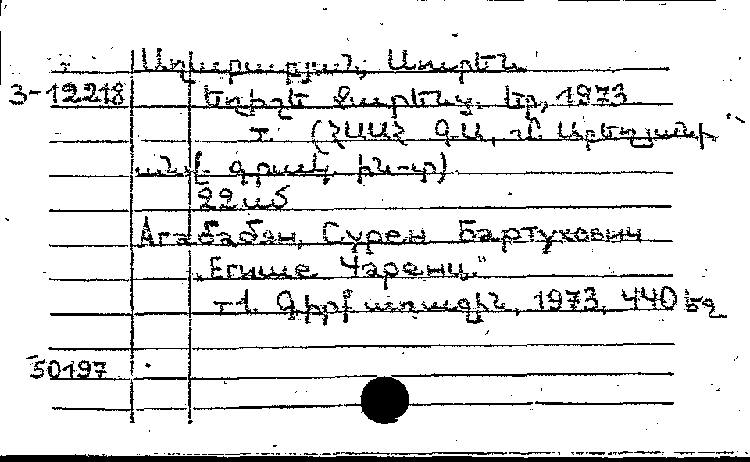 Աղաբաբյան, Սուրեն
3-12218 Եղիշե Չարենց. Եր, 1973
т. (ՀՍՍՀ ԳԱ, Մ. Աբեղյանի
անվ. գրակ. ին-տ)
22սմ
Агабабян, Сурен Бартухович
"Егише Чаренц."
т1. Գիրք առաջին, 1973, 440 էջ
50197